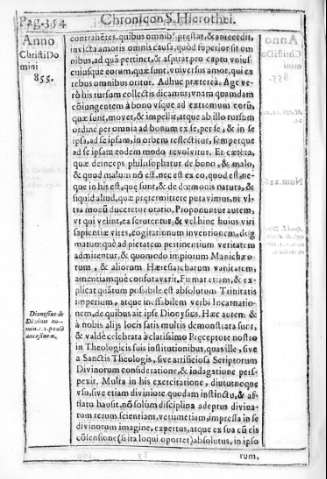 Pag. 354 Chronicon S. Hierothei.
Anno
Christi Do
mini
855.
contrahētes, quibus omnib9 præstat, & antecedit,
invicta amoris omnis causa, quod superior sit om
nibus, ad quā pertinet, & aspirat pro captu voius
cuiusque eorum, quæ sunt, vniversus amor, qui ex
rebus omnibus oritur. Adhuc præterea. Age ve-
rò his rursam collectis dicamus vnam quamdam
coniungentem à bono vsque ad extremum eorū,
quæ sunt, movet, & impellit, atque ab illo rursum
ordine per omnia ad bonum ex se, per se, & in se
ipsa, ad se ipsam, in orbem reflectitur, semperque
ad se ipsam eodem modo revolvitur. Et cætera,
quæ deinceps philosophatur de bono, & malo,
& quod malum nō est, nec est ex eo, quod est, ne-
que in his est, quę sunt, & de dœmonis natura, &
siquid aliud, quæ prætermittere putavimus, ne vl-
tra modū discurrat oratio. Proponuntur autem,
vt qui velint, ea scrutentur, & vel hinc huius viri
sapientiæ vires, cogitationum inventionem, dog
matum quòd ad pietatem pertinentium veritatem
admirentur, & quomodo impiorum Manichæo
rum, & aliorum Hæresiarcharum vanitatem,
amentiamque confutavarit. Fumat etiam, & ex
plicat quātum possibile est absolutum Trinitatis
imperium, atque ineffabilem verbi Incarnatio-
nem, de quibus ait ipse Dionysius. Hæc autem &
à nobis alijs locis satis multis demonstrata sunt,
& valdè celebrata à clarissimo Præceptore nostro
in Theologicis suis institutionibus, quas ille, sive
a Sanctis Theologis, sive artificiosa Scriptorum
Divinorum consideratione, & indagatione perspe-
xerit. Multa in his exercitatione, diuturnoque
vsu, sive etiam diviniore quodam instinctu, & af-
flatu hausit, nō solùm disciplina adeptus divina-
rum rerum scientiam, verùm etiam impressa in se
divinorum imagine, expertus, atque ex sua cū eis
cōsensione (si ita loqui oportet) absolutus, in ipso
rum,
Dionysius de
Divinis no-